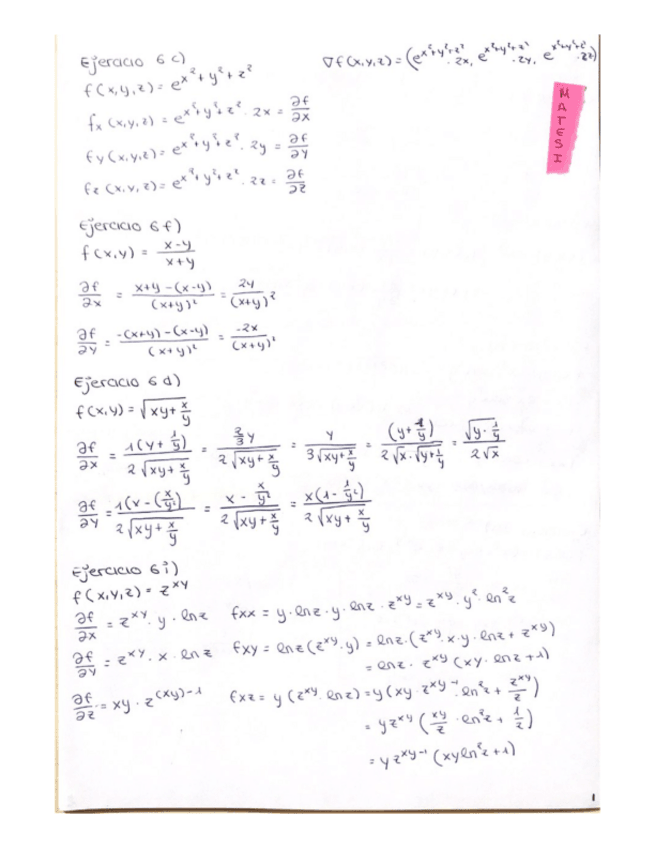 Ejercicio 6 c)
f(x,y,z) = e^{x²+y²+z²}
fx (x,y,z) = e^{x²+y²+z²} · 2x = ∂f/∂x
fy (x,y,z) = e^{x²+y²+z²} · 2y = ∂f/∂y
fz (x,y,z) = e^{x²+y²+z²} · 2z = ∂f/∂z
∇f(x,y,z) = (e^{x²+y²+z²} · 2x, e^{x²+y²+z²} · 2y, e^{x²+y²+z²} · 2z)
MATESI
Ejercicio 6 f)
f(x,y) = (x-y)/(x+y)
∂f/∂x = (x+y-(x-y))/(x+y)² = 2y/(x+y)²
∂f/∂y = (-(x+y)-(x-y))/(x+y)² = -2x/(x+y)²
Ejercicio 6 d)
f(x,y) = √(xy+x/y)
∂f/∂x = 1(y+1/y)/(2√(xy+x/y)) = (2/3 y)/(2√(xy+x/y)) = y/(3√(xy+x/y)) = (y+1/y)/(2√x·√(y+1/y)) = √(y·1/y)/(2√x)
∂f/∂y = 1(x-(x/y²))/(2√(xy+x/y)) = (x-x/y²)/(2√(xy+x/y)) = x(1-1/y²)/(2√(xy+x/y))
Ejercicio 6 i)
f(x,y,z) = z^{xy}
∂f/∂x = z^{xy} · y · ln z
fxx = y·lnz·y·lnz·z^{xy} = z^{xy}·y²·ln²z
∂f/∂y = z^{xy} · x · ln z
fxy = lnz(z^{xy}·y) = lnz·(z^{xy}·x·y·lnz + z^{xy})
= lnz · z^{xy} (xy·lnz+1)
∂f/∂z = xy · z^{(xy)-1}
fxz = y(z^{xy}·lnz) = y(xy·z^{xy-1}·ln²z + z^{xy}/z)
= yz^{xy}(xy/z · ln²z + 1/z)
= yz^{xy-1}(xyln²z+1)
1